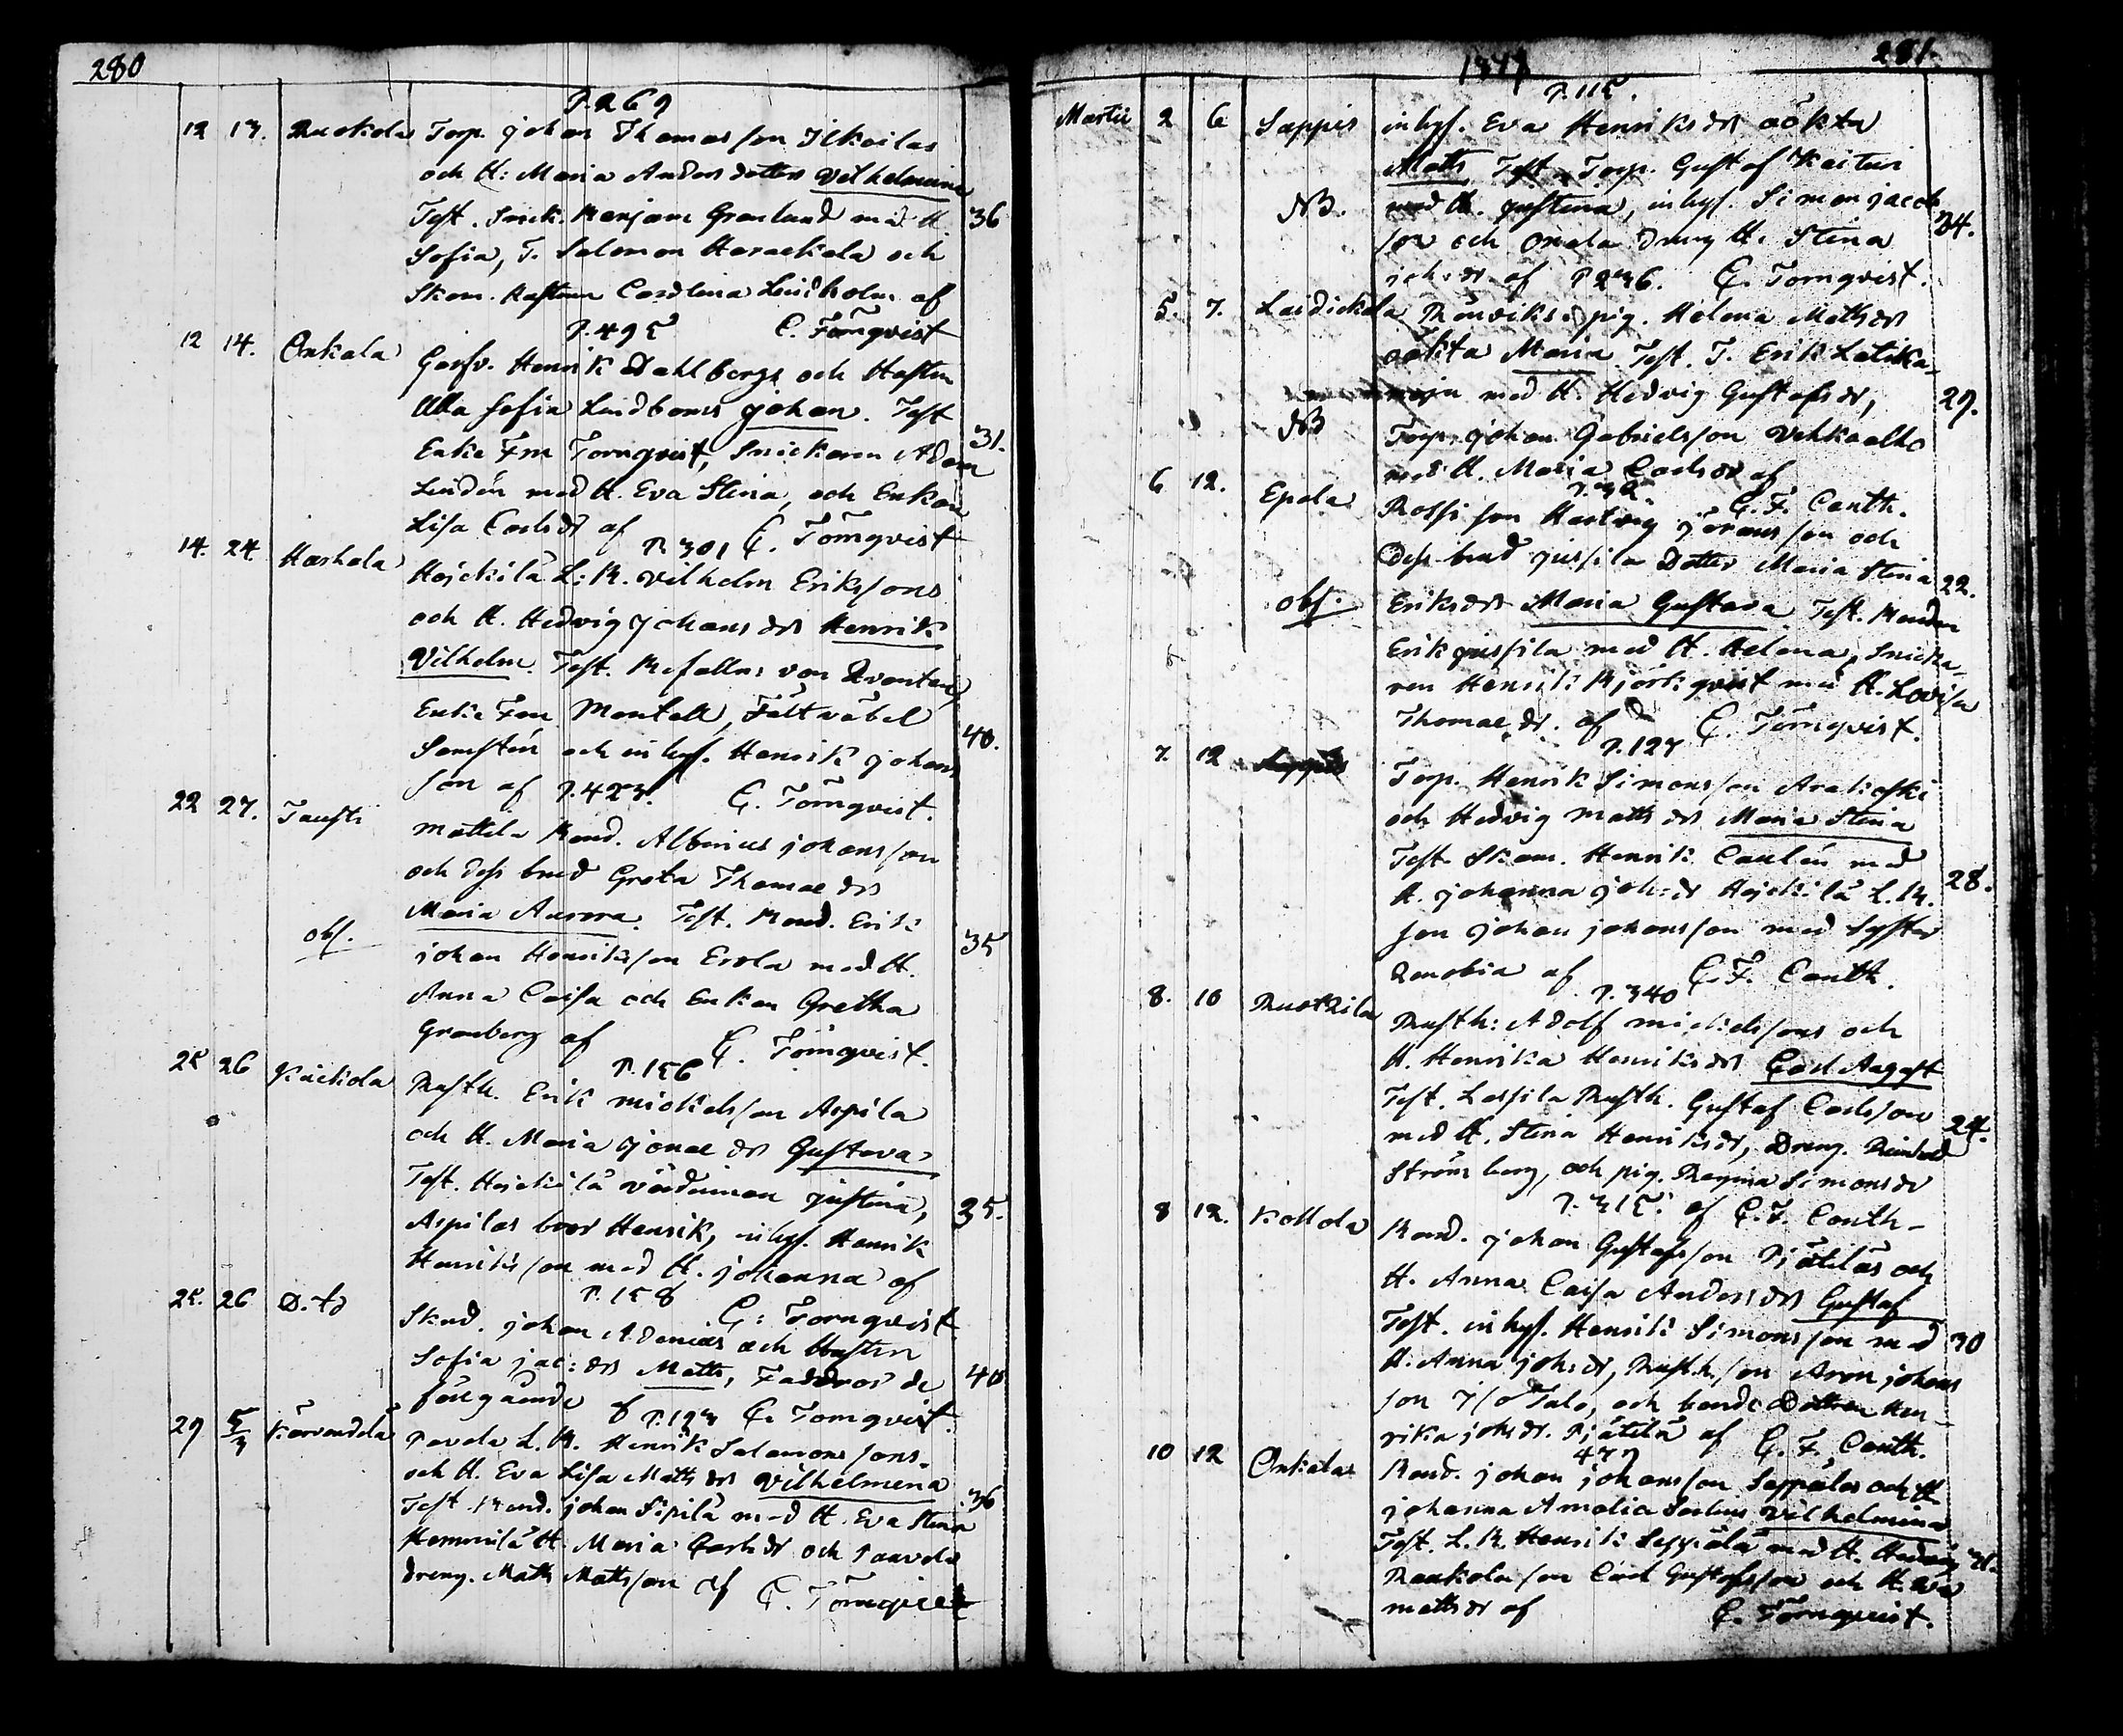 280
P. 269
12 13. Ruokola Torp. Johan Thomasson Ilkoilas
och H: Maria Andersdotters Vilhelmina
Test. Snick. Benjam Grönlund med H. 36
Sofia, T. Salomon Haraekala och
Skom. Hustrun Carolina Lindholm af
P. 495 C. Törnqvist
12 14. Onkala Garfv. Henrik Dahlbergs och Hustru
Ulla Sofia Lindboms Johan. Test
Enke Fru Törnqvist, Snickaren Adam 31.
Lindén med H. Eva Stina, och Enkan
Lisa Carlsdr af C. Törnqvist
P. 301
14. 24. Harhala Hejckilä L: B. Vilhelm Erikssons
och H. Hedvig Johansdrs Henrik
Vilhelm. Test. Befallns von Qvanten,
Enke Fru Montell, Fältväbel 40.
Somstén och inhys. Henrik Johans
son af P. 423. C. Törnqvist.
22 27. Tausti Mattila Bond. Albinius Johansson
och dess brud Greta Thomaedrs
Maria Aurora. Test. Bond. Erik
obs. Johan Henriksson Erola med H. 35
Anna Caisa och Enkan Gretha
Granberg af C. Törnqvist.
P. 156
25 26 Kuickola Rusth. Erik Mickelsson Aspila
och H. Maria Jonaedrs Gustava
Test. Hejckilä värdinnan Justina,
Aspilas bror Henrik, inhys. Henrik 35.
Henriksson med H. Johanna af
P. 158 C: Törnqvist
25. 26 D:to Skrd. Johan Adenius och Hustru
Sofia Jac:drs Matts, Faddrar de 40
föregående af P. 193 C. Törnqvist.
29 5/3 Kärvendelä Pavola L. B. Henrik Salomonssons
och H. Eva Lisa Mattsdrs Vilhelmina
Test. Bond. Johan Sipilä med H. Eva Stina 36
Hemmilä H. Maria Carlsdr och Paavola
dreng. Matts Mattsson af C. Törnqvist
281.
1848
P. 115.
Martii 2 6 Sappis inhys. Eva Henriksdrs oökta
Matts Test. Torp. Gustaf Kaituri
NB. med H. Justina, inhys. Simon Jacob 34.
son och Onela dreng H. Stina
Joh:dr af P 236. C. Törnqvist.
5. 7. Laidickala Rönviks pig. Helena Mattsdrs
oökta Maria Test. T. Erik Latika
maja med H. Hedvig Gustafsdr, 29.
NB Torp. Johan Gabrielsson Vehkaalho
med H. Maria Carlsdr af
P. 32 C. F. Canth.
6 12. Epola Rossi son Hartvig Göransson och
dess brud Jussila Dotter Maria Stina 22.
obs. Eriksdrs Maria Gustava Test. Bonden
Erik Jussila med H. Helena, Snicka
ren Henrik Björkqvist med H. Lovisa
Thomaedr. af C. Törnqvist.
P. 127
7. 12 Torp. Henrik Simonsson Arakoski
och Hedvig Mattsdrs Maria Stina
Test. Skom. Henrik Caulén med 28.
H. Johanna Joh:dr Hejckilä L. B.
son Johan Johansson med Syster
Zenobia af C. F. Canth.
P. 340
8. 10 Ruskila Rusth: Adolf Mickelssons och
H. Henrika Henriksdrs Carl August
Test. Lassila Rusth. Gustaf Carlsson 24.
med H. Stina Henriksdr, Dreng. Reinhold
Strömberg, och pig. Regina Simonsdr
P. 315. af C. F. Canth.
8 12. Kollola Bond. Johan Gustafsson Pjätiläs och
H. Anna Caisa Andersdrs Gustaf
Test. inhys. Henrik Simonsson med 30
H. Anna Joh:dr, Rusth. son Aron Johans
son Iso Talo, och bonde Dottren Hen
rika Joh:dr. Pjätilä af C. F. Canth.
477
10 12 Onkala Bond. Johan Johansson Seppälas och H
Johanna Amalia Vilhelmina
Test. L. B. Henrik Seppälä med H. Hedvig 31.
Raukola son Carl Gustafsson och H. Eva
Mattsdr af C. Törnqvist.